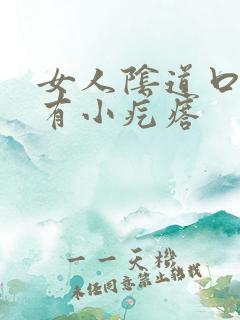 女人陰道口
有小疙瘩
一一天機
未经同意禁止转载